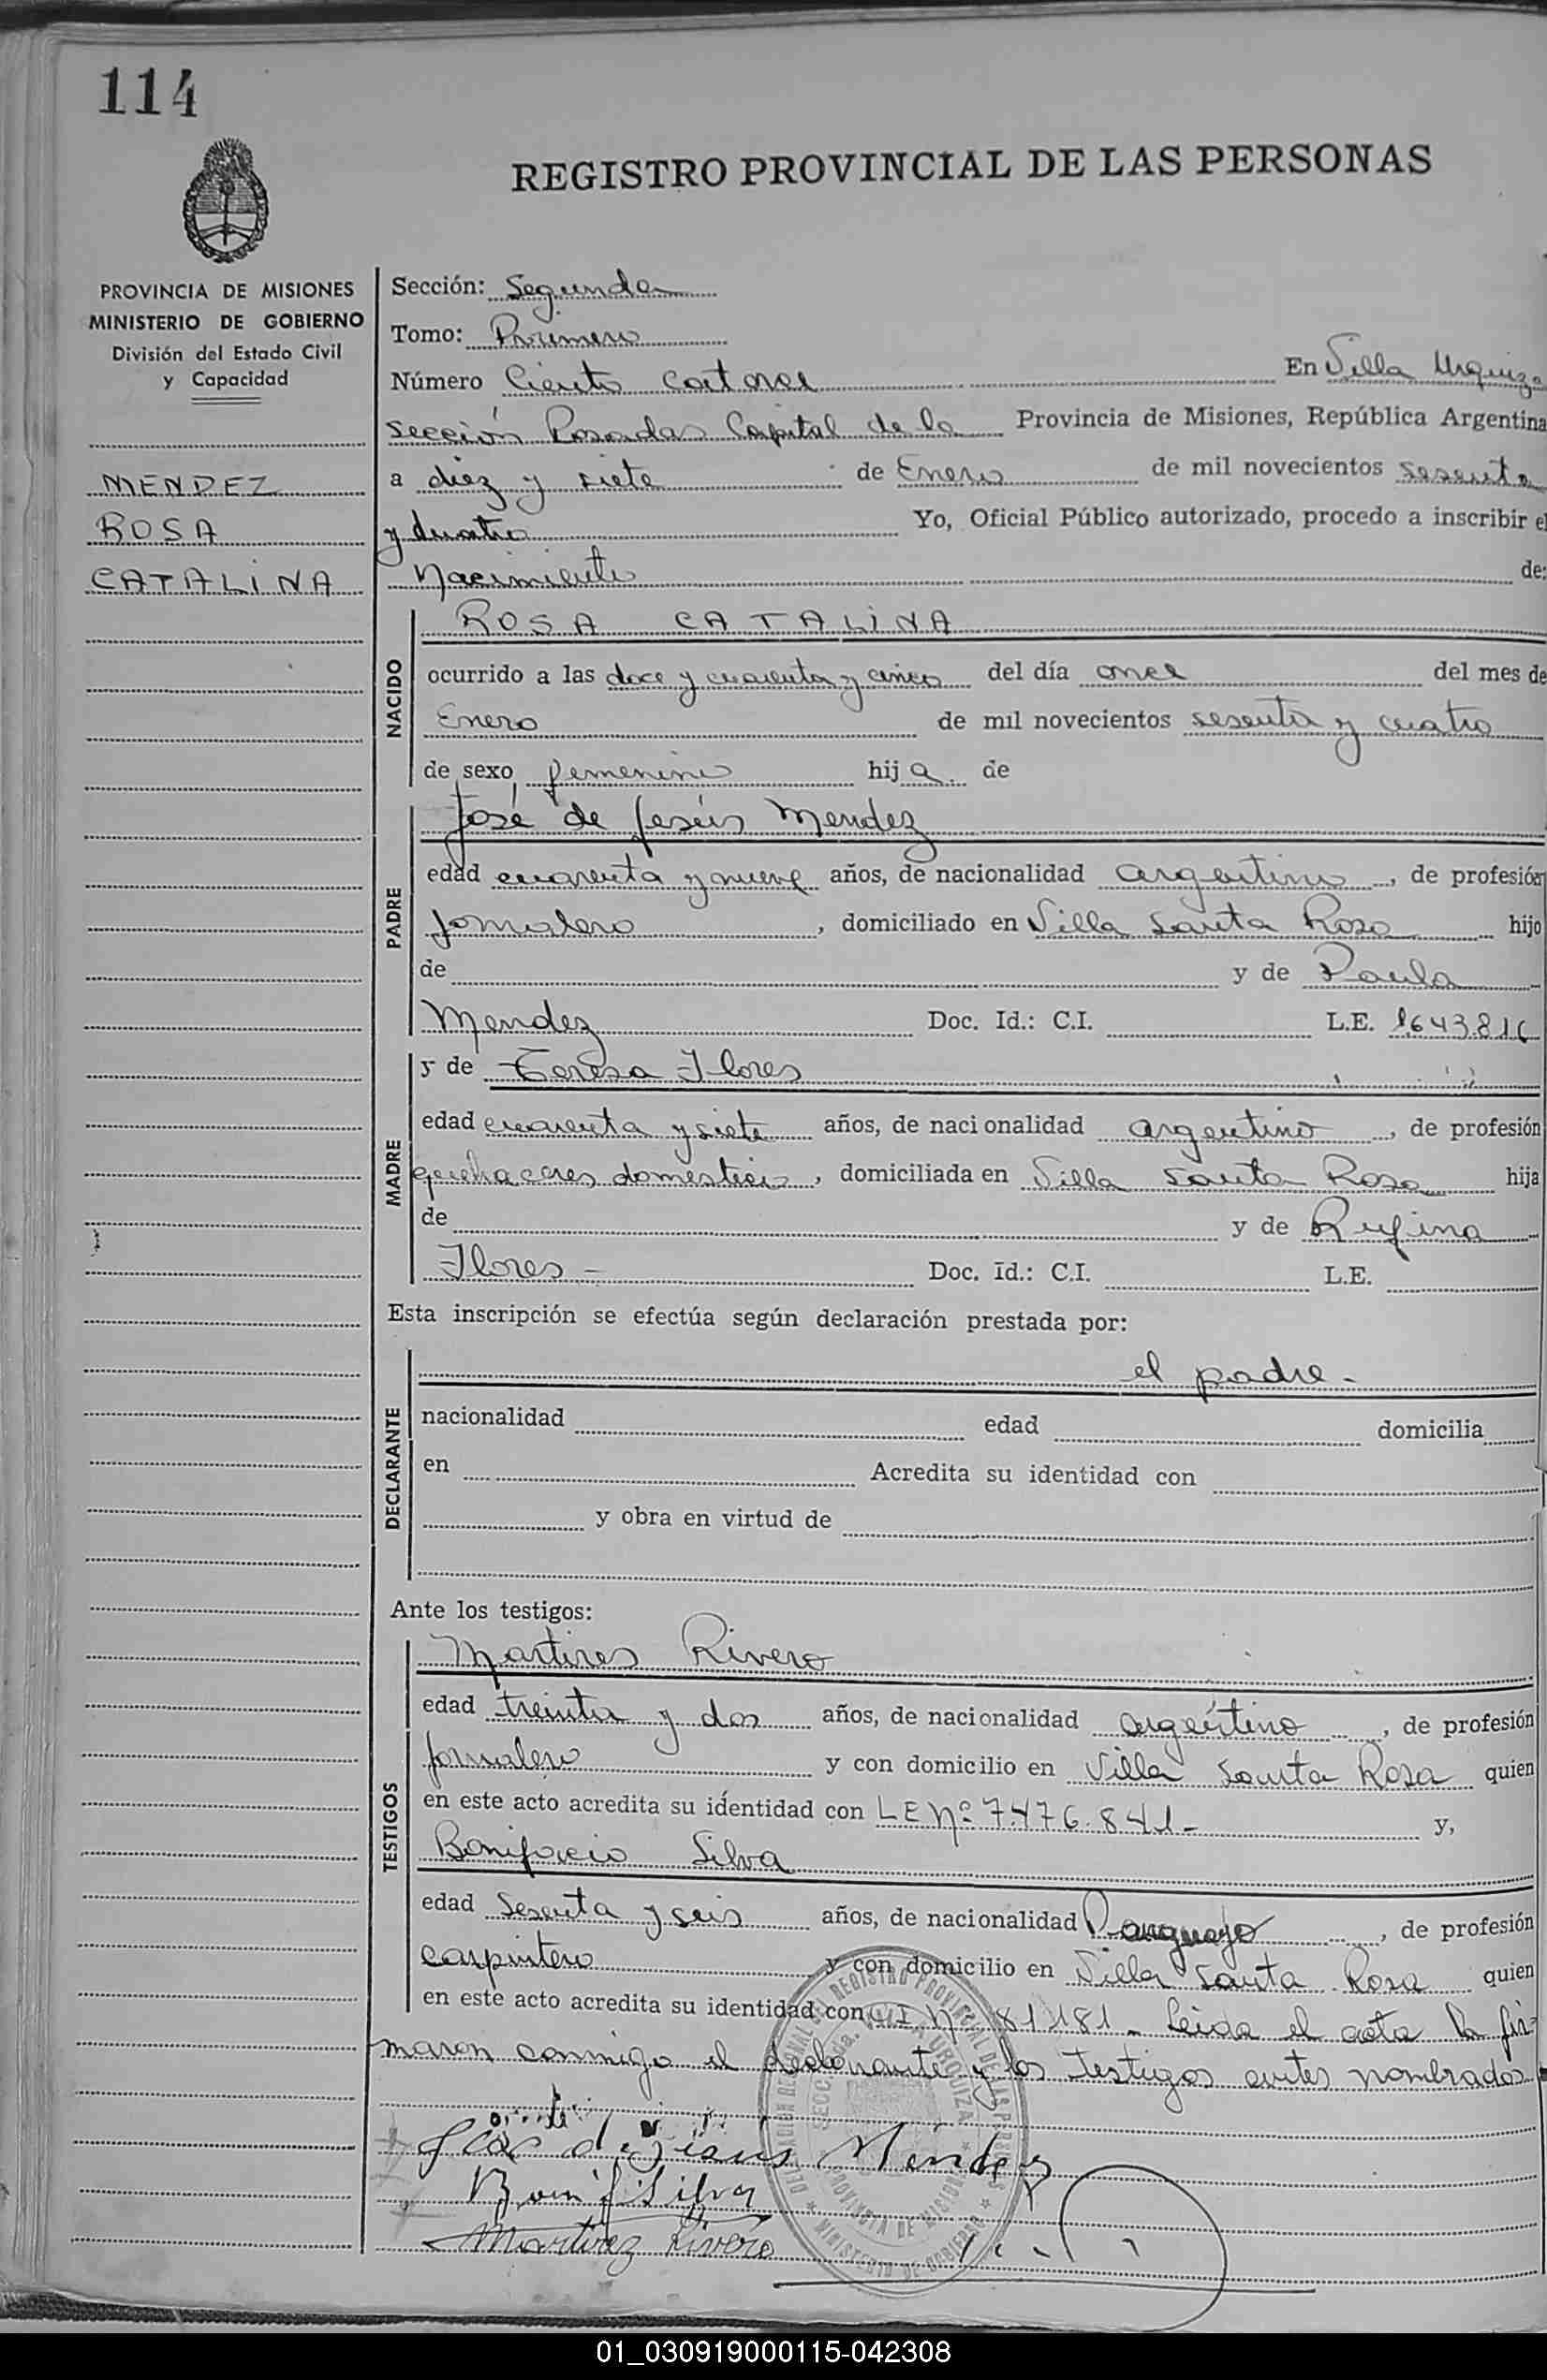 114
REGISTRO PROVINCIAL DE LAS PERSONAS
PROVINCIA DE MISIONES
MINISTERIO DE GOBIERNO
División del Estado Civil
y Capacidad
MENDEZ
ROSA
CATALINA
Sección: Segunda
Tomo: Primero
Número Ciento catorce En Villa Urquiza
Sección Posadas Capital de la Provincia de Misiones, República Argentina
a diez y siete de Enero de mil novecientos sesenta
y cuatro Yo, Oficial Público autorizado, procedo a inscribir el
Nacimiento de:
NACIDO
ROSA CATALINA
ocurrido a las doce y cuarenta y cinco del día once del mes de
Enero de mil novecientos sesenta y cuatro
de sexo femenino hija de
PADRE
José de Jesús Mendez
edad cuarenta y nueve años, de nacionalidad argentino, de profesión
jornalero, domiciliado en Villa Santa Rosa hijo
de y de Paula
Mendez Doc. Id.: C.I. L.E.
MADRE
y de Teresa Flores
edad cuarenta y siete años, de nacionalidad argentina, de profesión
quehaceres domesticos, domiciliada en Villa Santa Rosa hija
de y de Rufina
Flores - Doc. Id.: C.I. L.E.
Esta inscripción se efectúa según declaración prestada por:
DECLARANTE
el padre -
nacionalidad edad domicilia
en Acredita su identidad con
y obra en virtud de
Ante los testigos:
TESTIGOS
Martires Rivero
edad treinta y dos años, de nacionalidad argentino, de profesión
jornalero y con domicilio en Villa Santa Rosa quien
en este acto acredita su identidad con LE Nº 7.476.841 - y,
Bonifacio Silva
edad Sesenta y seis años, de nacionalidad Paraguayo, de profesión
carpintero y con domicilio en Villa Santa Rosa quien
en este acto acredita su identidad con CI Nº 81.181 - Leida el acta la fir-
maron conmigo el declarante y los testigos antes nombrados
José de Jesús Méndez
Bonif Silva
Martirez Rivero
DELEGACION REGIONAL DEL REGISTRO PROVINCIAL DE LAS PERSONAS
SECC. 2da. VILLA URQUIZA
PROVINCIA DE MISIONES
MINISTERIO DE GOBIERNO
01_030919000115-042308